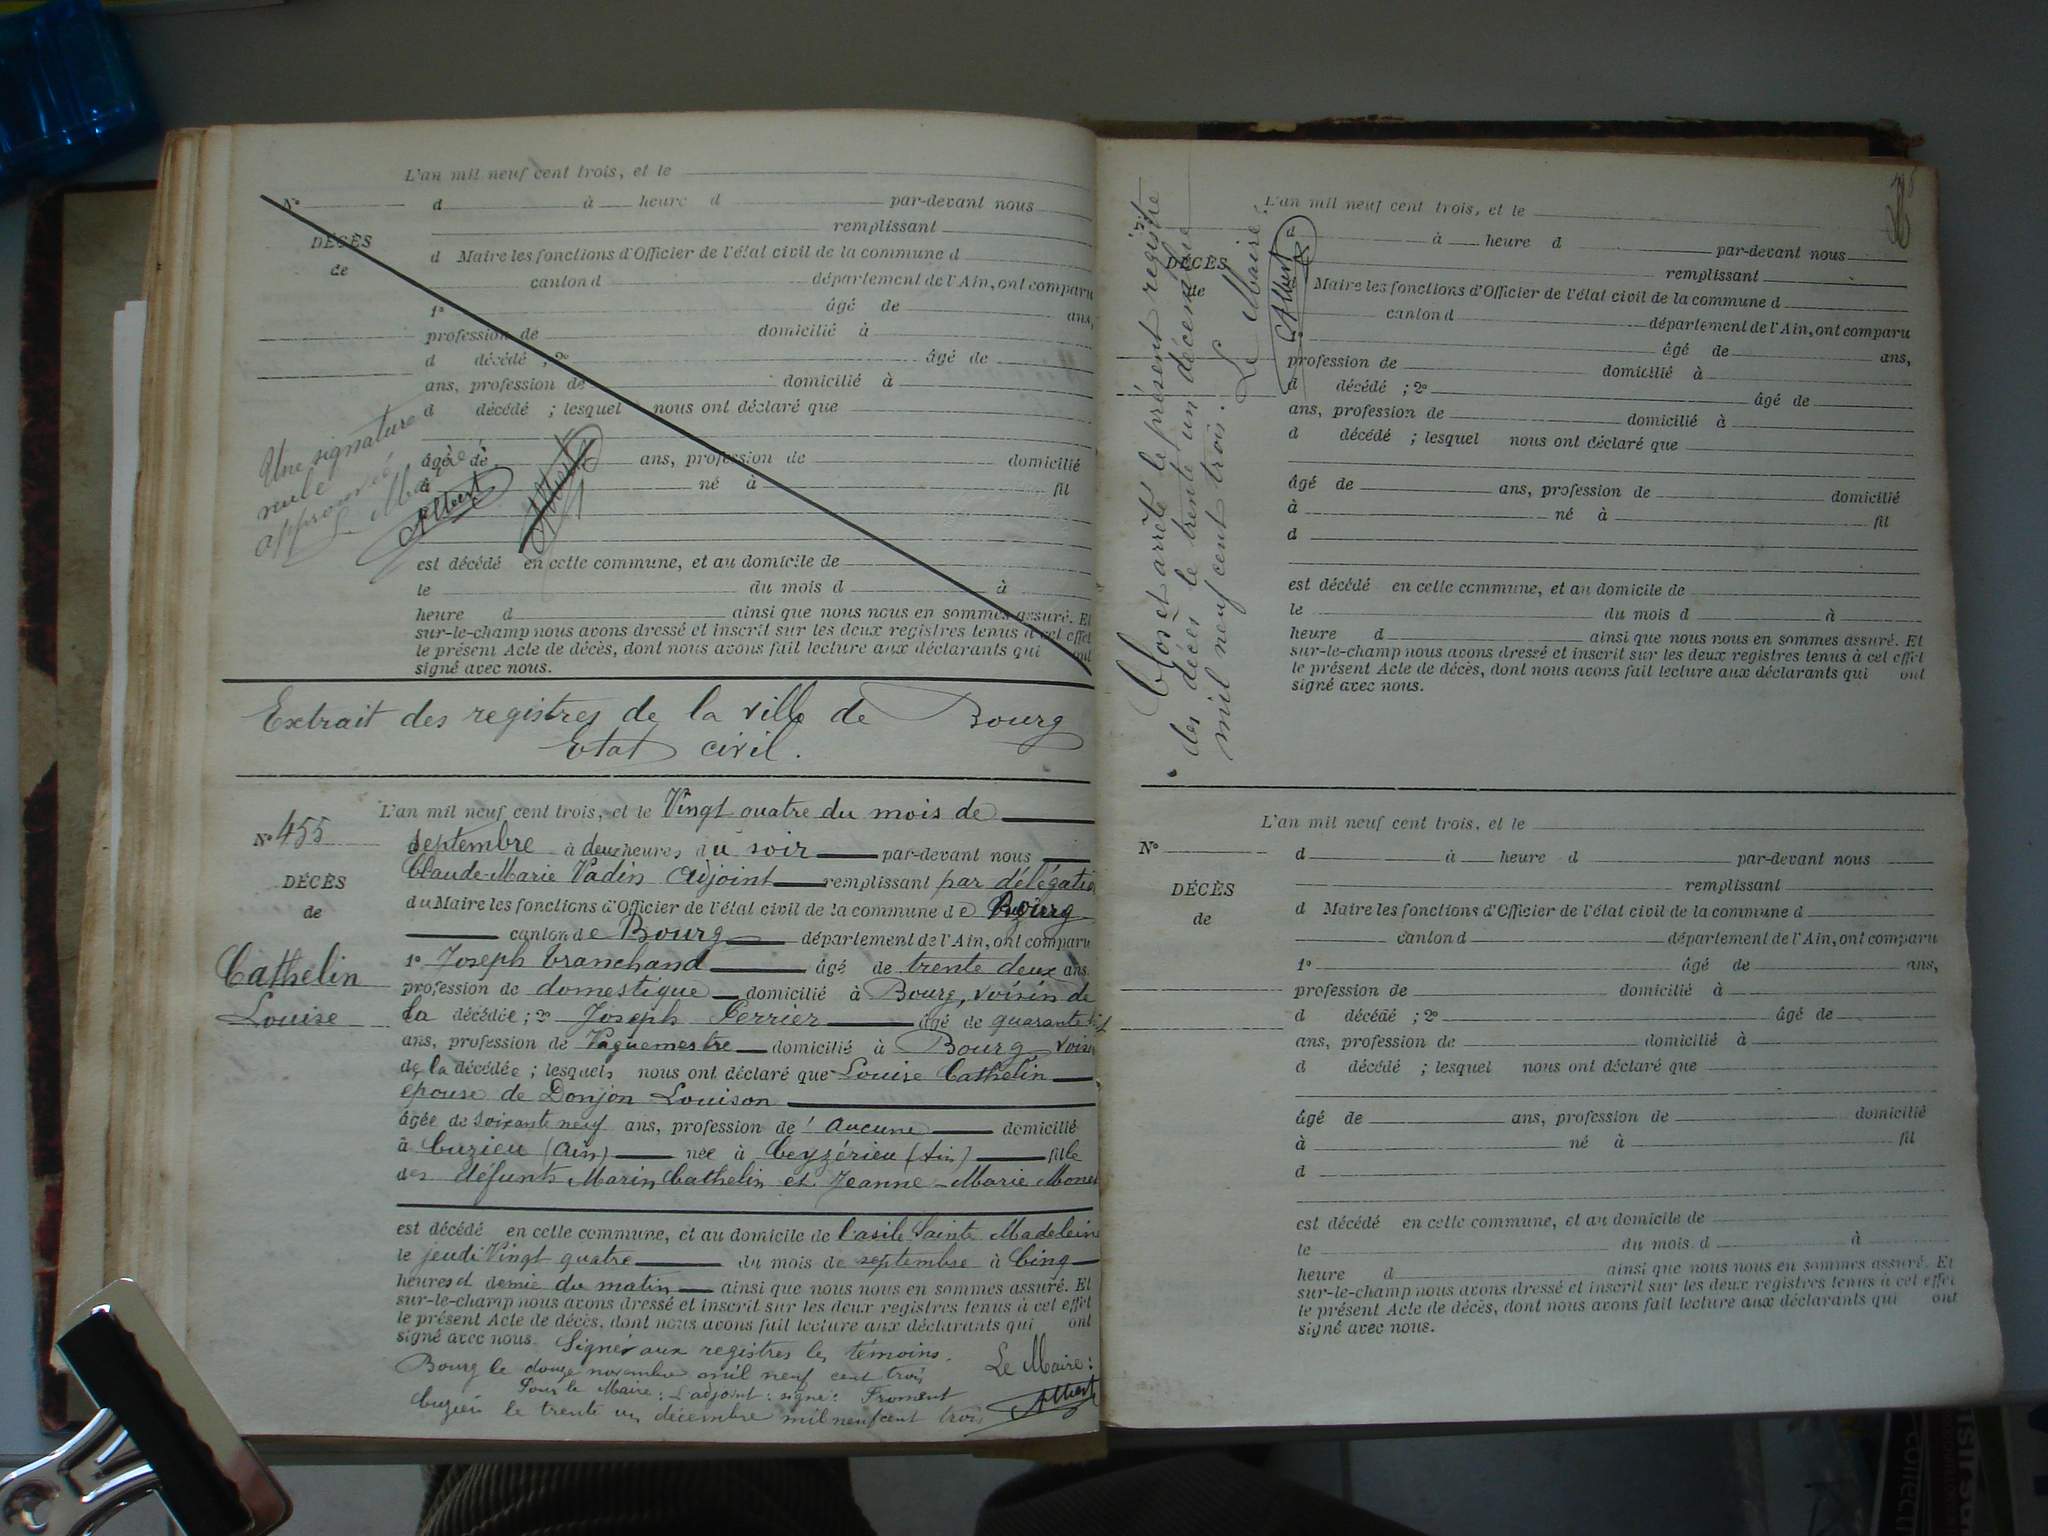 L'an mil neuf cent trois, et le
N° d à heure d par-devant nous
DÉCÈS remplissant
de d Maire les fonctions d'Officier de l'état civil de la commune d
canton d département de l'Ain, ont comparu
1° âgé de ans,
profession de domicilié à
d décédé ; 2° âgé de
ans, profession de domicilié à
d décédé ; lesquel nous ont déclaré que
âgé de ans, profession de domicilié
à né à fil
Une signature
nulle
approuvée
Le Maire
Albert
est décédé en cette commune, et au domicile de
le du mois d à
heure d ainsi que nous nous en sommes assuré. Et
sur-le-champ nous avons dressé et inscrit sur les deux registres tenus à cet effet
le présent Acte de décès, dont nous avons fait lecture aux déclarants qui ont
signé avec nous.
Extrait des registres de la ville de Bourg
Etat civil.
L'an mil neuf cent trois, et le Vingt quatre du mois de
N° 455 septembre à deux heures du soir par-devant nous
Claude-Marie Vadin Adjoint remplissant par délégatio
DÉCÈS du Maire les fonctions d'Officier de l'état civil de la commune de Bourg
de canton de Bourg département de l'Ain, ont comparu
Cathelin 1° Joseph Branchand âgé de trente deux ans.
profession de domestique domicilié à Bourg, voisin de
Louise la décédée ; 2° Joseph Perrier âgé de quarante
ans, profession de Vaguemestre domicilié à Bourg voisin
de la décédée ; lesquels nous ont déclaré que Louise Cathelin
epouse de Donjon Louison
âgée de soixante neuf ans, profession de aucune domicilié
à Cuzieu (Ain) née à Ceyzérieu (Ain) fille
des défunts Marin Cathelin et Jeanne-Marie Monet
est décédé en cette commune, et au domicile de l'asile Sainte Madeleine
le jeudi Vingt quatre du mois de septembre à Cinq
heures et demie du matin ainsi que nous nous en sommes assuré. Et
sur-le-champ nous avons dressé et inscrit sur les deux registres tenus à cet effet
le présent Acte de décès, dont nous avons fait lecture aux déclarants qui ont
signé avec nous. Signés aux registres les témoins.
Bourg le douze novembre mil neuf cent trois Le Maire :
Pour le Maire : L'adjoint : signé : Froment
Cuzieu le trente un décembre mil neuf cent trois Albert
Clos et arrêté le présent registre
des décès le trente un décembre
mil neuf cent trois.
Le Maire :
Albert
L'an mil neuf cent trois, et le
d à heure d par-devant nous
DÉCÈS remplissant
de Maire les fonctions d'Officier de l'état civil de la commune d
canton d département de l'Ain, ont comparu
âgé de ans,
profession de domicilié à
d décédé ; 2° âgé de
ans, profession de domicilié à
d décédé ; lesquel nous ont déclaré que
âgé de ans, profession de domicilié
à né à fil
d
est décédé en cette commune, et au domicile de
le du mois d à
heure d ainsi que nous nous en sommes assuré. Et
sur-le-champ nous avons dressé et inscrit sur les deux registres tenus à cet effet
le présent Acte de décès, dont nous avons fait lecture aux déclarants qui ont
signé avec nous.
L'an mil neuf cent trois, et le
N° d à heure d par-devant nous
DÉCÈS remplissant
de d Maire les fonctions d'Officier de l'état civil de la commune d
canton d département de l'Ain, ont comparu
1° âgé de ans,
profession de domicilié à
d décédé ; 2° âgé de
ans, profession de domicilié à
d décédé ; lesquel nous ont déclaré que
âgé de ans, profession de domicilié
à né à fil
d
est décédé en cette commune, et au domicile de
le du mois d à
heure d ainsi que nous nous en sommes assuré. Et
sur-le-champ nous avons dressé et inscrit sur les deux registres tenus à cet effet
le présent Acte de décès, dont nous avons fait lecture aux déclarants qui ont
signé avec nous.